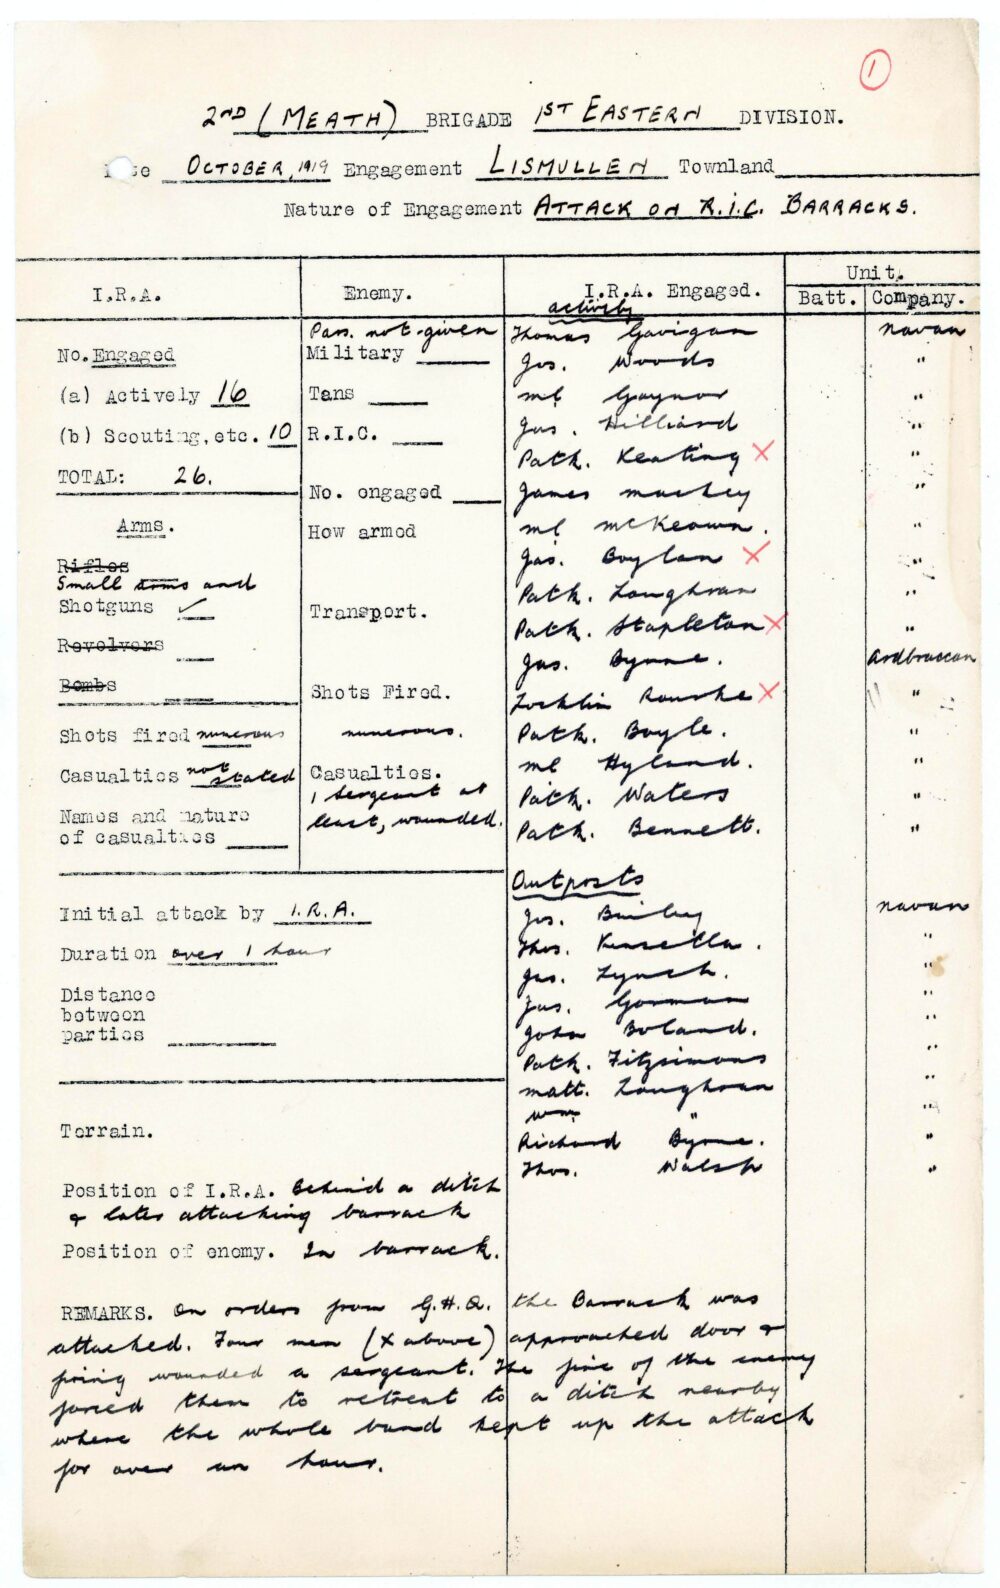 1
2ND (MEATH) BRIGADE 1ST EASTERN DIVISION.
OCTOBER, 1919 Engagement LISMULLEN Townland
Nature of Engagement ATTACK ON R.I.C. BARRACKS.
I.R.A.
Enemy.
I.R.A. Engaged.
Unit.
Batt. Company.
No. Engaged
(a) Actively 16
(b) Scouting, etc. 10
TOTAL: 26.
Arms.
Rifles
Small arms and
Shotguns ✓
Revolvers
Bombs
Shots fired numerous
Casualties not stated
Names and nature
of casualties
Pars. not given
Military
Tans
R.I.C.
No. engaged
How armed
Transport.
Shots Fired.
numerous.
Casualties.
1 Sergeant at
least, wounded.
actively
Thomas Gavigan Navan
Jos. Woods "
ml Gaynor "
Jas. Hilliard "
Patk. Keating X "
James Mackey "
ml McKeown. "
Jas. Boylan X "
Patk. Loughran "
Patk. Stapleton X "
Jas. Byrne. Ardbraccan
Locklin Rourke X "
Patk. Boyle. "
ml Hyland. "
Patk. Waters "
Patk. Bennett. "
Outposts
Jos. Navan
Thos. Kinsella. "
Jas. Lynch. "
Jas. Gorman "
John Boland. "
Patk. Fitzsimons "
Matt. Loughran "
Wm. " "
Richard Byrne. "
Thos. Walsh "
Initial attack by I.R.A.
Duration over 1 hour
Distance
between
parties
Terrain.
Position of I.R.A. Behind a ditch
& later attacking barrack
Position of enemy. In barrack.
REMARKS. On orders from G.H.Q. the Barrack was
attacked. Four men (X above) approached door &
firing wounded a sergeant. The fire of the enemy
forced them to retreat to a ditch nearby
where the whole band kept up the attack
for over an hour.